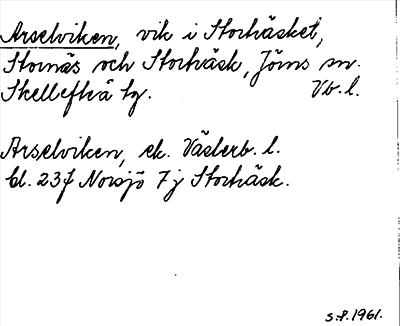 Arselviken, vik i Storträsket,
Stornäs och Storträsk, Jörns sn.
Skellefteå tg. Vb. l.
Arselviken, ek. Västerb. l.
bl. 23 J Norsjö 7 j Storträsk.
S.P. 1961.